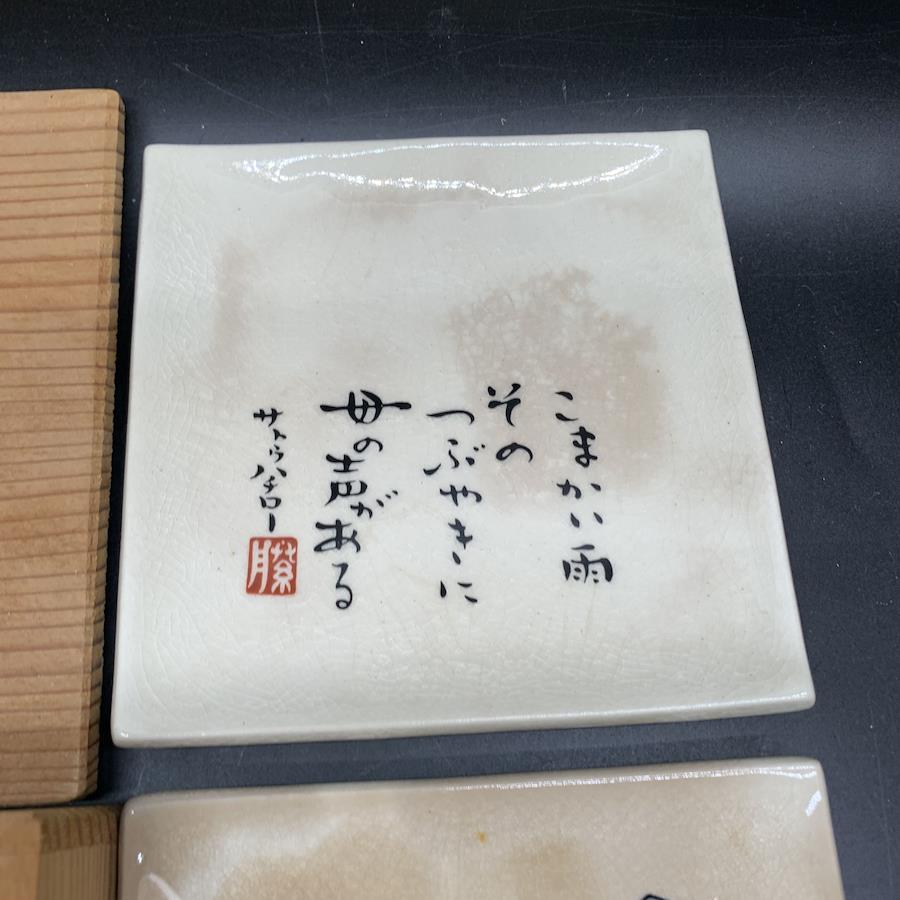 こまかい雨
その
つぶやきに
母の声がある
サトウハチロー